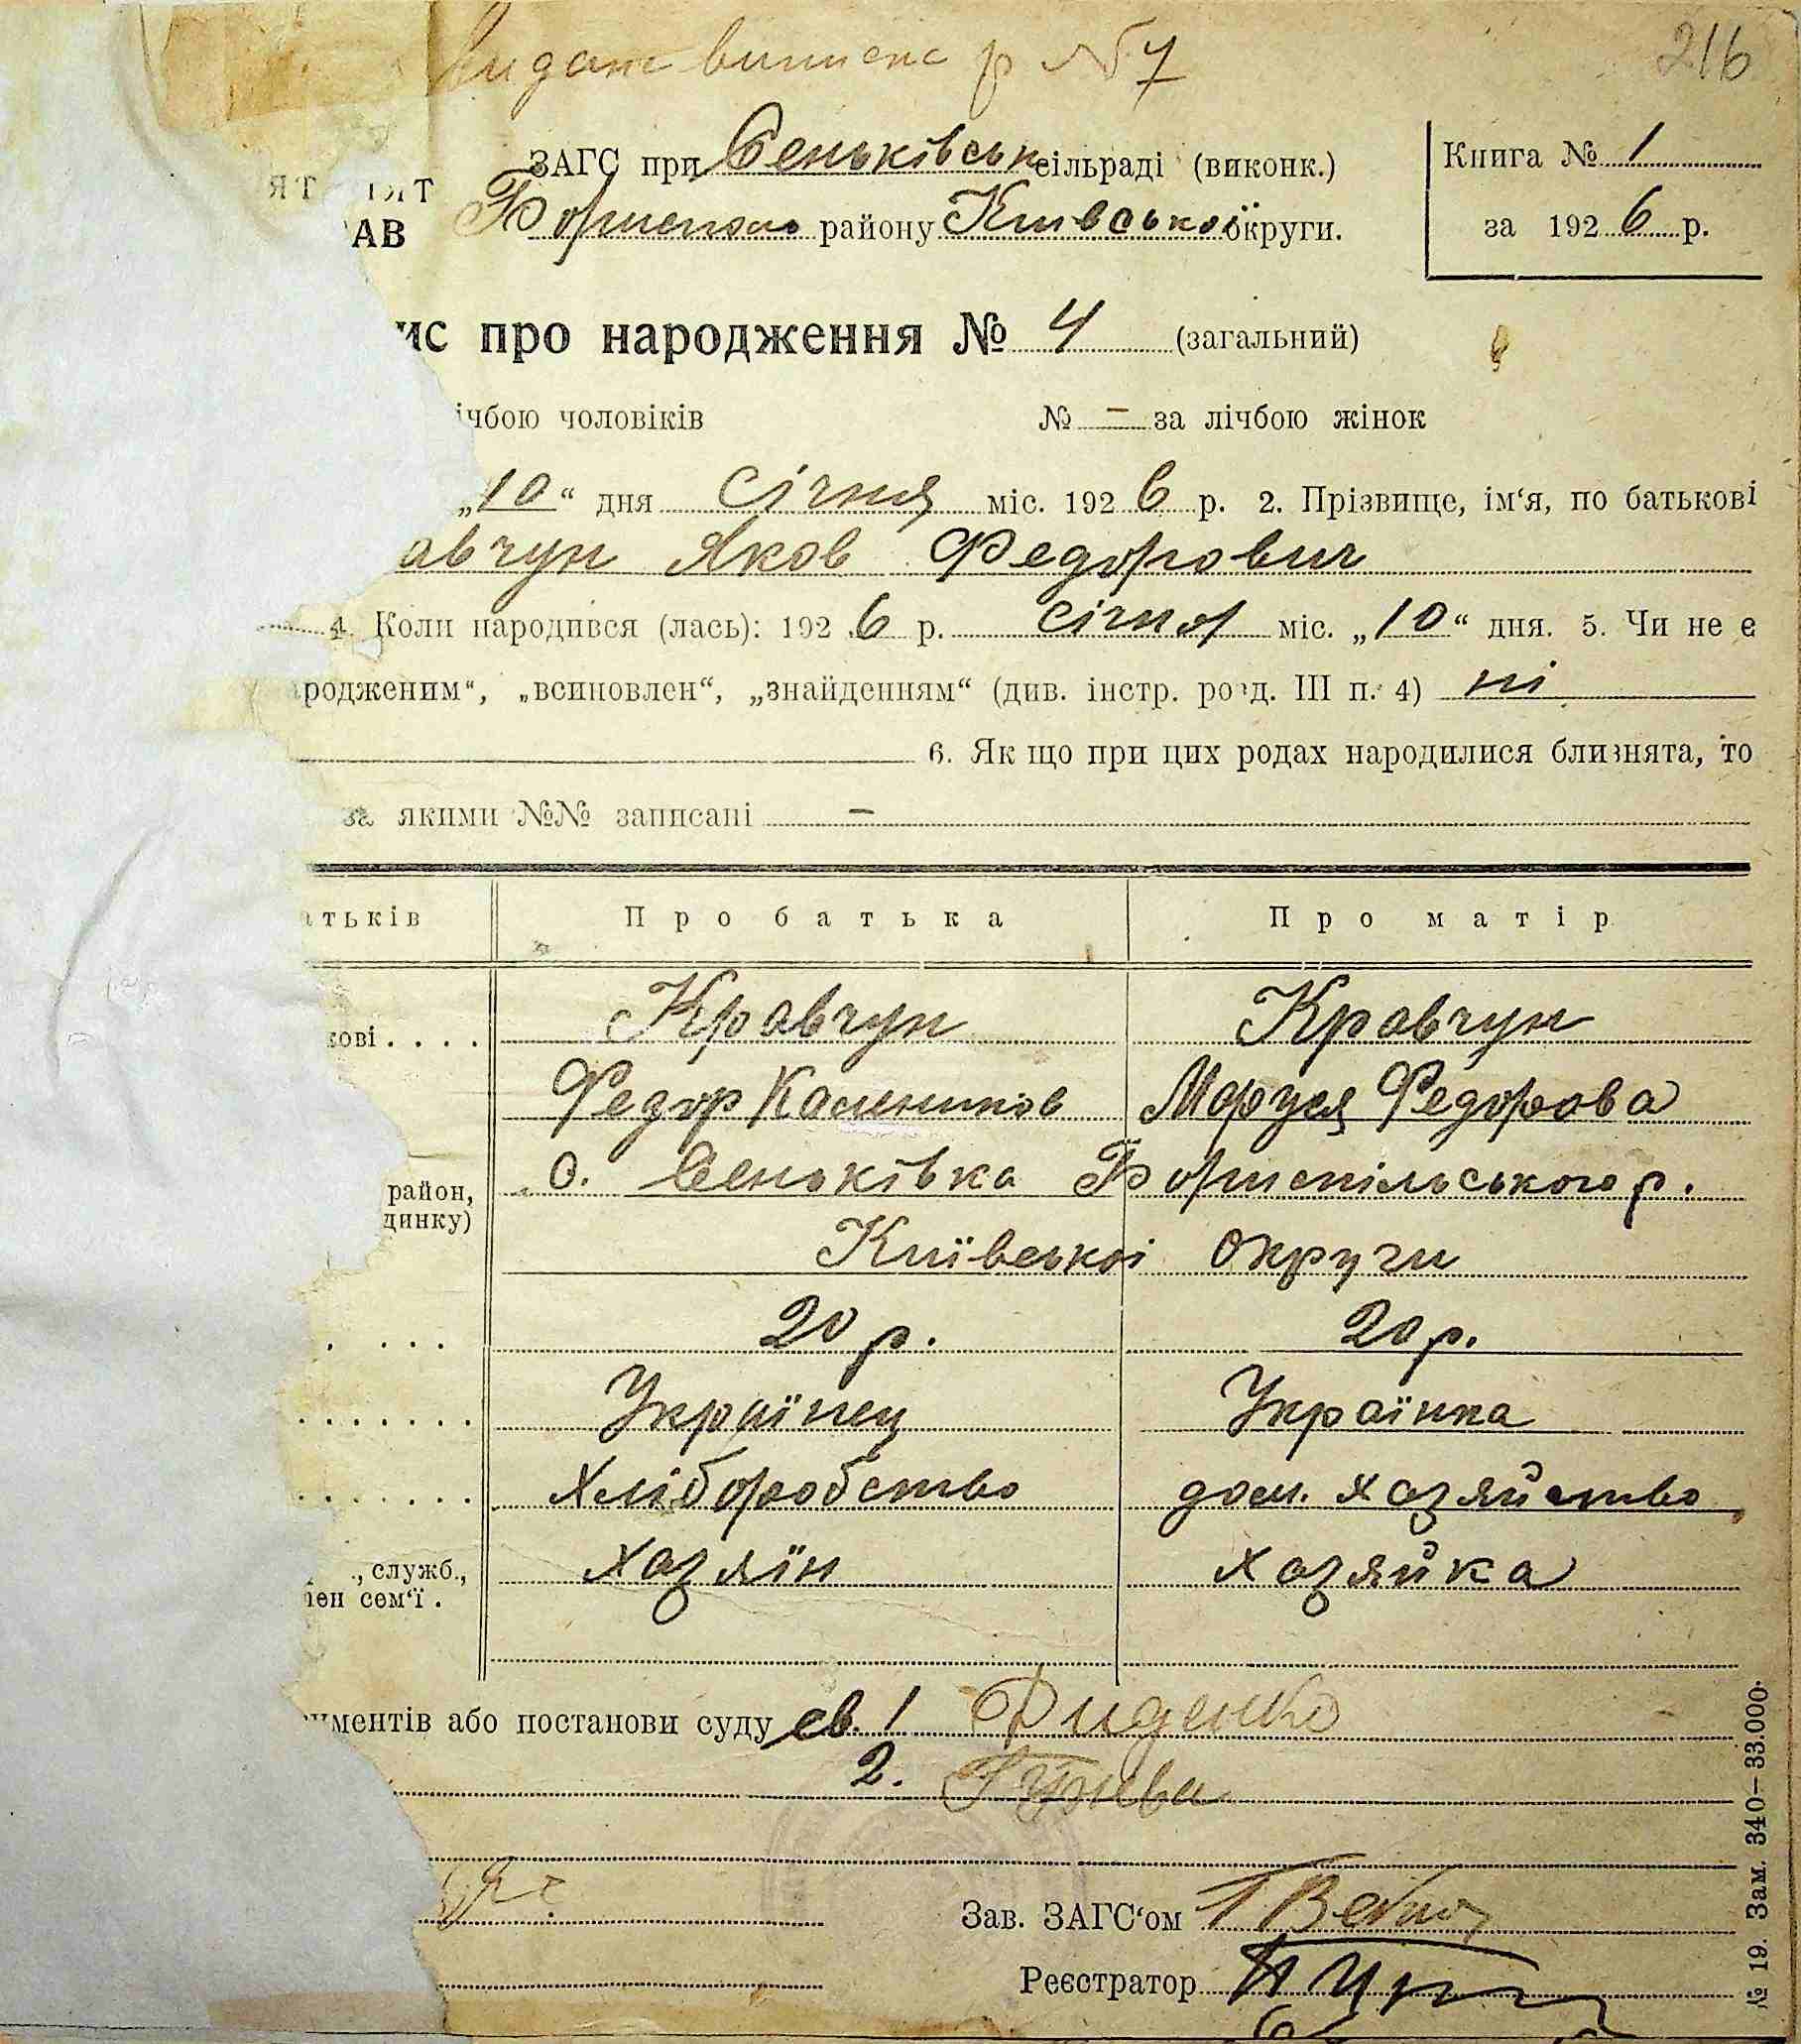 випис р №7
216
ЗАГС при Сеньківськ сільраді (виконк.)
Книга № 1
АВ
району Київської округи.
за 1926 р.
ис про народження № 4 (загальний)
ічбою чоловіків № – за лічбою жінок
„10“ дня січня міс. 1926 р. 2. Прізвище, ім‘я, по батькові
авчун Яков Федорович
4. Коли народився (лась): 1926 р. січня міс. „10“ дня. 5. Чи не є
ародженим“, „всиновлен“, „знайденням“ (див. інстр. розд. III п. 4) ні
6. Як що при цих родах народилися близнята, то
за якими №№ записані –
атьків Про батька Про матір
кові . . . . Кравчун Кравчун
Федор Маруся Федорова
район, с. Сеньківка Бориспільського р.
динку)
Київської округи
20 р. 20 р.
Українец Українка
Хліборобство дом. хазяйство
., служб., хазяїн хазяйка
лен сем‘ї .
ументів або постанови суду св. 1 Диденко
2.
Зав. ЗАГС‘ом
Реєстратор
№ 19. Зам. 340–33.000.